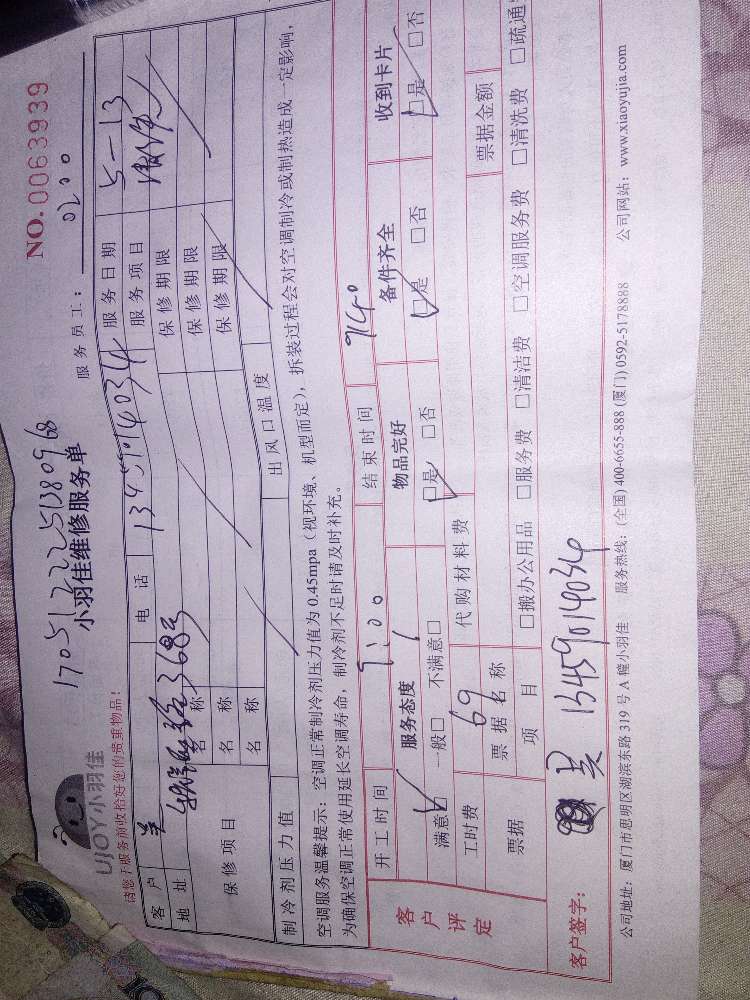 170512225138096
NO. 0063939
UJOY小羽佳
小羽佳维修服务单
服务员工：
请您于服务前收检好您的贵重物品！
客户 电话 13459014034 服务日期 5-13
地址 368号 服务项目
保修项目 名称 保修期限
名称 保修期限
名称 保修期限
制冷剂压力值 出风口温度
空调服务温馨提示：空调正常制冷剂压力值为0.45mpa（视环境、机型而定），拆装过程会对空调制冷或制热造成一定影响，
为确保空调正常使用延长空调寿命，制冷剂不足时请及时补充。
客户评定 开工时间 9:00 结束时间 940
服务态度 物品完好 备件齐全 收到卡片
满意□ 一般□ 不满意□ □是 □否 □是 □否 □是 □否
工时费 69 代购材料费
票据 票据名称 票据金额
项目 □搬办公用品 □服务费 □清洁费 □空调服务费 □清洗费 □疏通
客户签字： 吴 13459014034
公司地址：厦门市思明区湖滨东路319号A幢小羽佳 服务热线：(全国) 400-6655-888 (厦门) 0592-5178888 公司网站：www.xiaoyujia.com